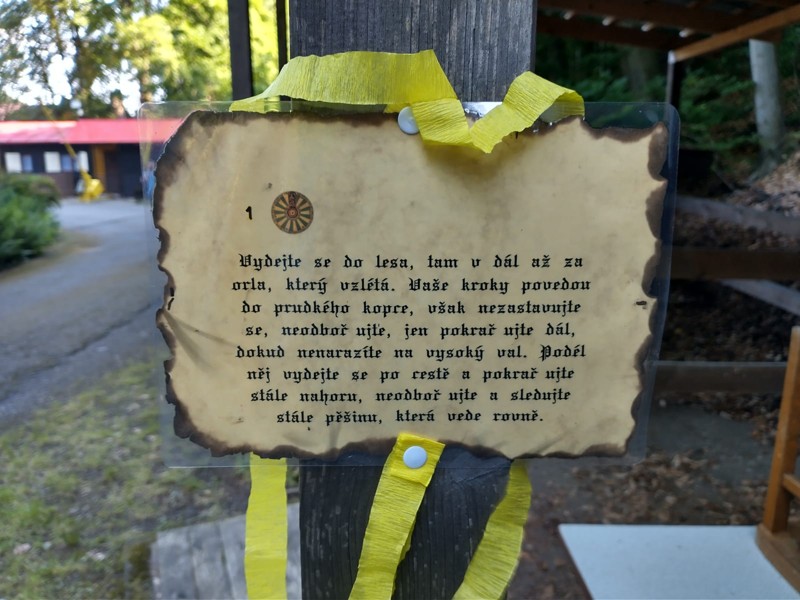 1
Vydejte se do lesa, tam v dál až za
orla, který vzlétá. Vaše kroky povedou
do prudkého kopce, však nezastavujte
se, neodboř ujte, jen pokrař ujte dál,
dokud nenarazíte na vysoký val. Podél
něj vydejte se po cestě a pokrař ujte
stále nahoru, neodboř ujte a sledujte
stále pěšinu, která vede rovně.